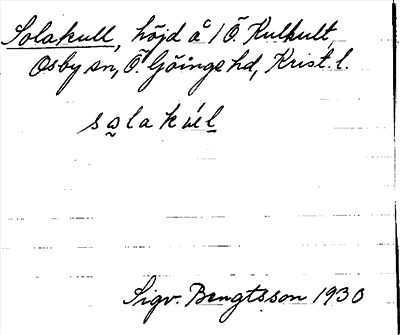 Solakull, höjd å 1 Ö. Kulkult,
Osby sn, Ö. Göinge hd, Krist. l.
salakúl
Sigv. Bengtsson 1930